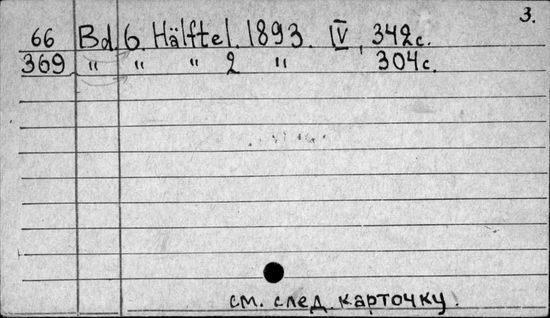 3.
66 Bd. 6. Hälfte 1. 1893. IV, 342с.
369 " " " 2 " 304с.
см. след. карточку.